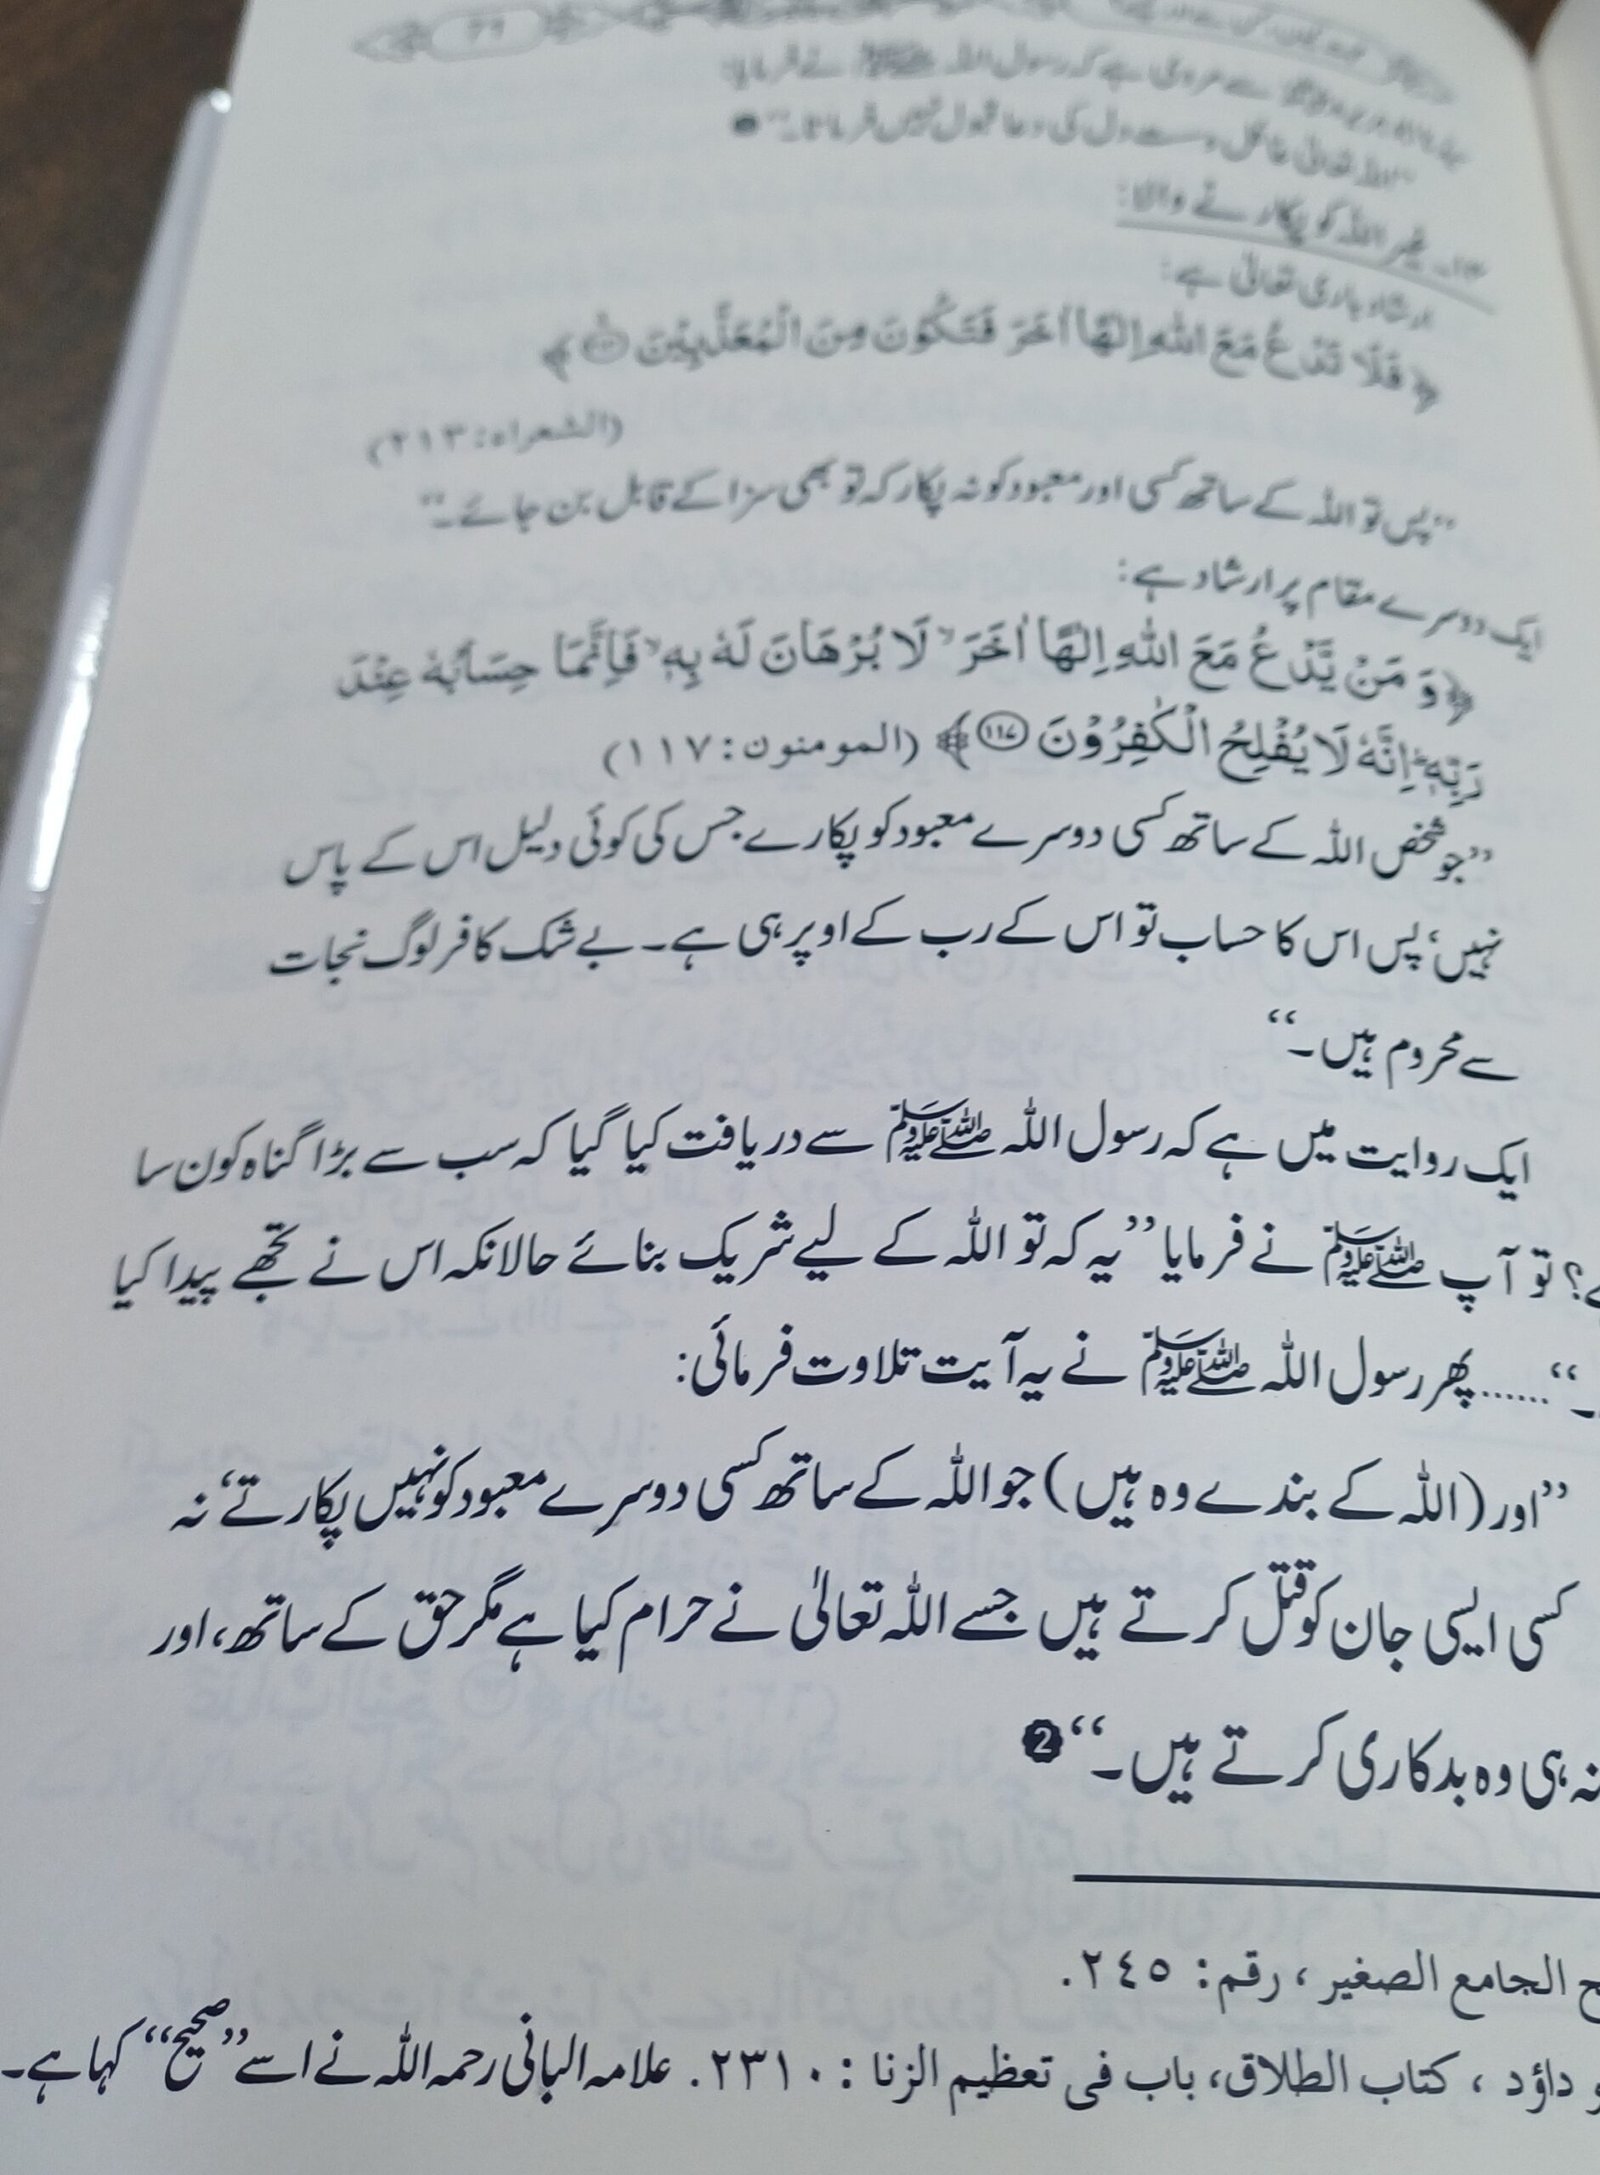 سے مروی ہے کہ رسول اللہ ﷺ نے فرمایا:
"اللہ تعالیٰ غافل و سست دل کی دعا قبول نہیں فرماتا۔"
غیر اللہ کو پکارنے والا:
ارشاد باری تعالیٰ ہے:
﴿فَلَا تَدْعُ مَعَ اللّٰهِ اِلٰهًا اٰخَرَ فَتَكُوْنَ مِنَ الْمُعَذَّبِيْنَ﴾
(الشعراء: ٢١٣)
"پس تو اللہ کے ساتھ کسی اور معبود کو نہ پکار کہ تو بھی سزا کے قابل بن جائے۔"
ایک دوسرے مقام پر ارشاد ہے:
﴿وَ مَنْ يَّدْعُ مَعَ اللّٰهِ اِلٰهًا اٰخَرَ ۙ لَا بُرْهَانَ لَهٗ بِهٖ ۙ فَاِنَّمَا حِسَابُهٗ عِنْدَ
رَبِّهٖ ؕ اِنَّهٗ لَا يُفْلِحُ الْكٰفِرُوْنَ ۝۱۱۷﴾ (المومنون: ١١٧)
"جو شخص اللہ کے ساتھ کسی دوسرے معبود کو پکارے جس کی کوئی دلیل اس کے پاس
نہیں، پس اس کا حساب تو اس کے رب کے اوپر ہی ہے۔ بے شک کافر لوگ نجات
سے محروم ہیں۔"
ایک روایت میں ہے کہ رسول اللہ ﷺ سے دریافت کیا گیا کہ سب سے بڑا گناہ کون سا
؟ تو آپ ﷺ نے فرمایا "یہ کہ تو اللہ کے لیے شریک بنائے حالانکہ اس نے تجھے پیدا کیا
۔"...... پھر رسول اللہ ﷺ نے یہ آیت تلاوت فرمائی:
"اور (اللہ کے بندے وہ ہیں) جو اللہ کے ساتھ کسی دوسرے معبود کو نہیں پکارتے، نہ
کسی ایسی جان کو قتل کرتے ہیں جسے اللہ تعالیٰ نے حرام کیا ہے مگر حق کے ساتھ، اور
نہ ہی وہ بدکاری کرتے ہیں۔" ❷
الجامع الصغير ، رقم: ٢٤٥.
داؤد ، كتاب الطلاق، باب فى تعظيم الزنا : ٢٣١٠. علامہ البانی رحمہ اللہ نے اسے "صحیح" کہا ہے۔